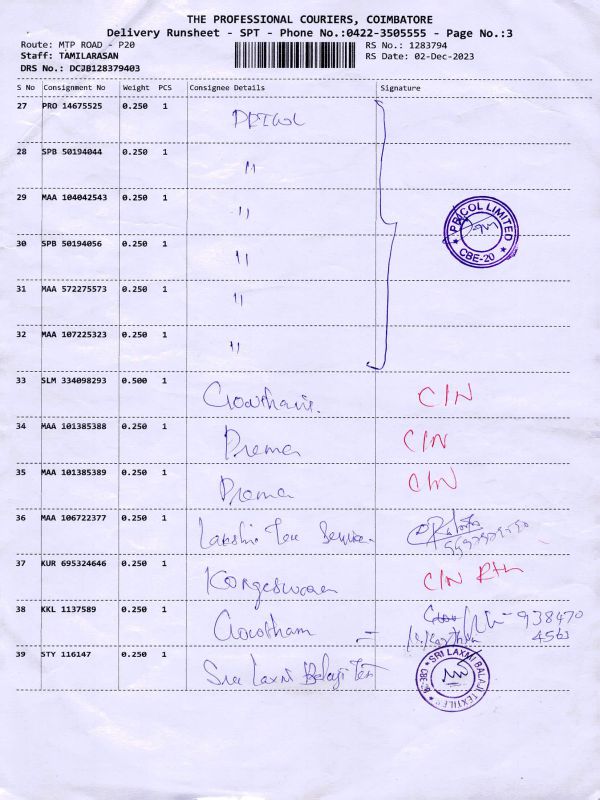 THE PROFESSIONAL COURIERS, COIMBATORE
Delivery Runsheet - SPT - Phone No.:0422-3505555 - Page No.:3
Route: MTP ROAD - P20 RS No.: 1283794
Staff: TAMILARASAN RS Date: 02-Dec-2023
DRS No.: DCJB128379403
S No Consignment No Weight PCS Consignee Details Signature
27 PRO 14675525 0.250 1
28 SPB 50194044 0.250 1 "
29 MAA 104042543 0.250 1 "
PRICOL LIMITED
CBE-20
30 SPB 50194056 0.250 1 "
31 MAA 572275573 0.250 1 "
32 MAA 107225323 0.250 1 "
33 SLM 334098293 0.500 1 C/N
34 MAA 101385388 0.250 1 Prema C/N
35 MAA 101385389 0.250 1 Prema C/N
36 MAA 106722377 0.250 1
37 KUR 695324646 0.250 1 C/N
38 KKL 1137589 0.250 1 Gowtham 938470
4563
39 STY 116147 0.250 1 Sri Laxmi Balaji Tex
SRI LAXMI BALAJI TEXTILES